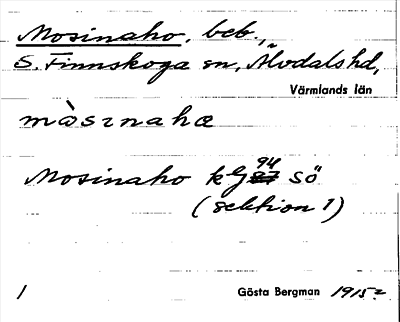 Mosinaho, beb.,
S. Finnskoga sn, Älvdals hd,
Värmlands län
mὰsɪnahæ
Mosinaho kg 94 87 Sö
(sektion 1)
1 Gösta Bergman 1915